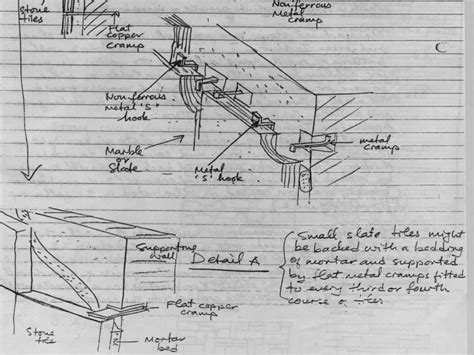 Stone
tiles
Flat
copper
cramp
Non ferrous
Metal
cramp
C
Non ferrous
metal 'S'
hook
Marble
or
Slate
Metal
'S' hook
metal
cramp
Supporting
wall
Detail A
Flat copper
cramp
Stone
tiles
Mortar
bed
Small slate tiles might
be backed with a bedding
of mortar and supported
by flat metal cramps fitted
to every third or fourth
course o tiles